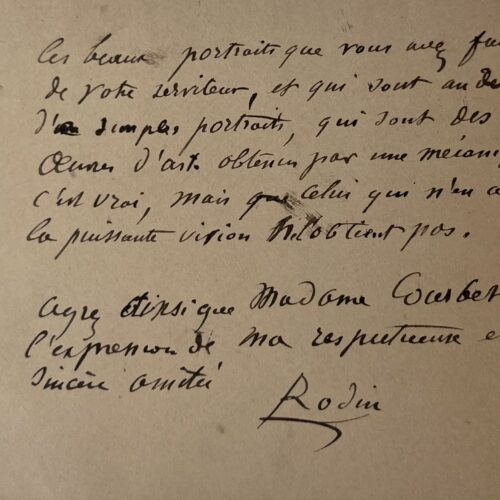 Ces beaux portraits que vous avez fai
de votre serviteur, et qui sont au de
d'un simples portraits, qui sont des
Œuvres d'art obtenus par une mécani
c'est vrai, mais que celui qui n'en a
la puissante vision n'obtient pas.
agrez ainsi que Madame Courbet
l'expression de ma respectueuse e
sincère amitié
Rodin